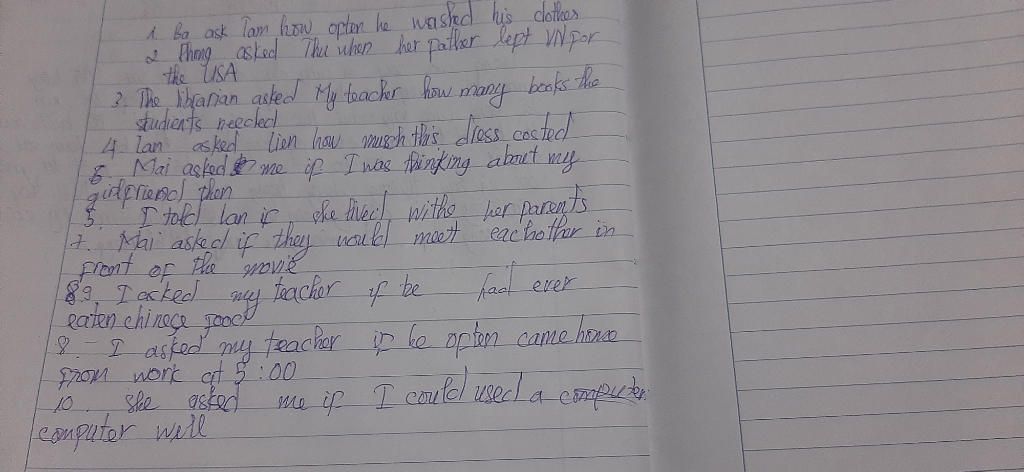 1. Ba ask Tam how opten he washed his clothes
2 Phong asked Thu when her pather left VN por
the USA
3. The librarian asked My teacher how many books the
students needed
4 Lan asked Lien how musch this dress costed
6. Mai asked me if I was thinking about my
girlfriend then
5. I told lan if she lived withe her parents
7. Mai asked if they would meet eachother in
front of the movie
89. I asked my teacher if he had ever
eaten chinece food
8. - I asked my teacher if he opten came home
from work at 5:00
10. she asked me if I could used a computer
computer well